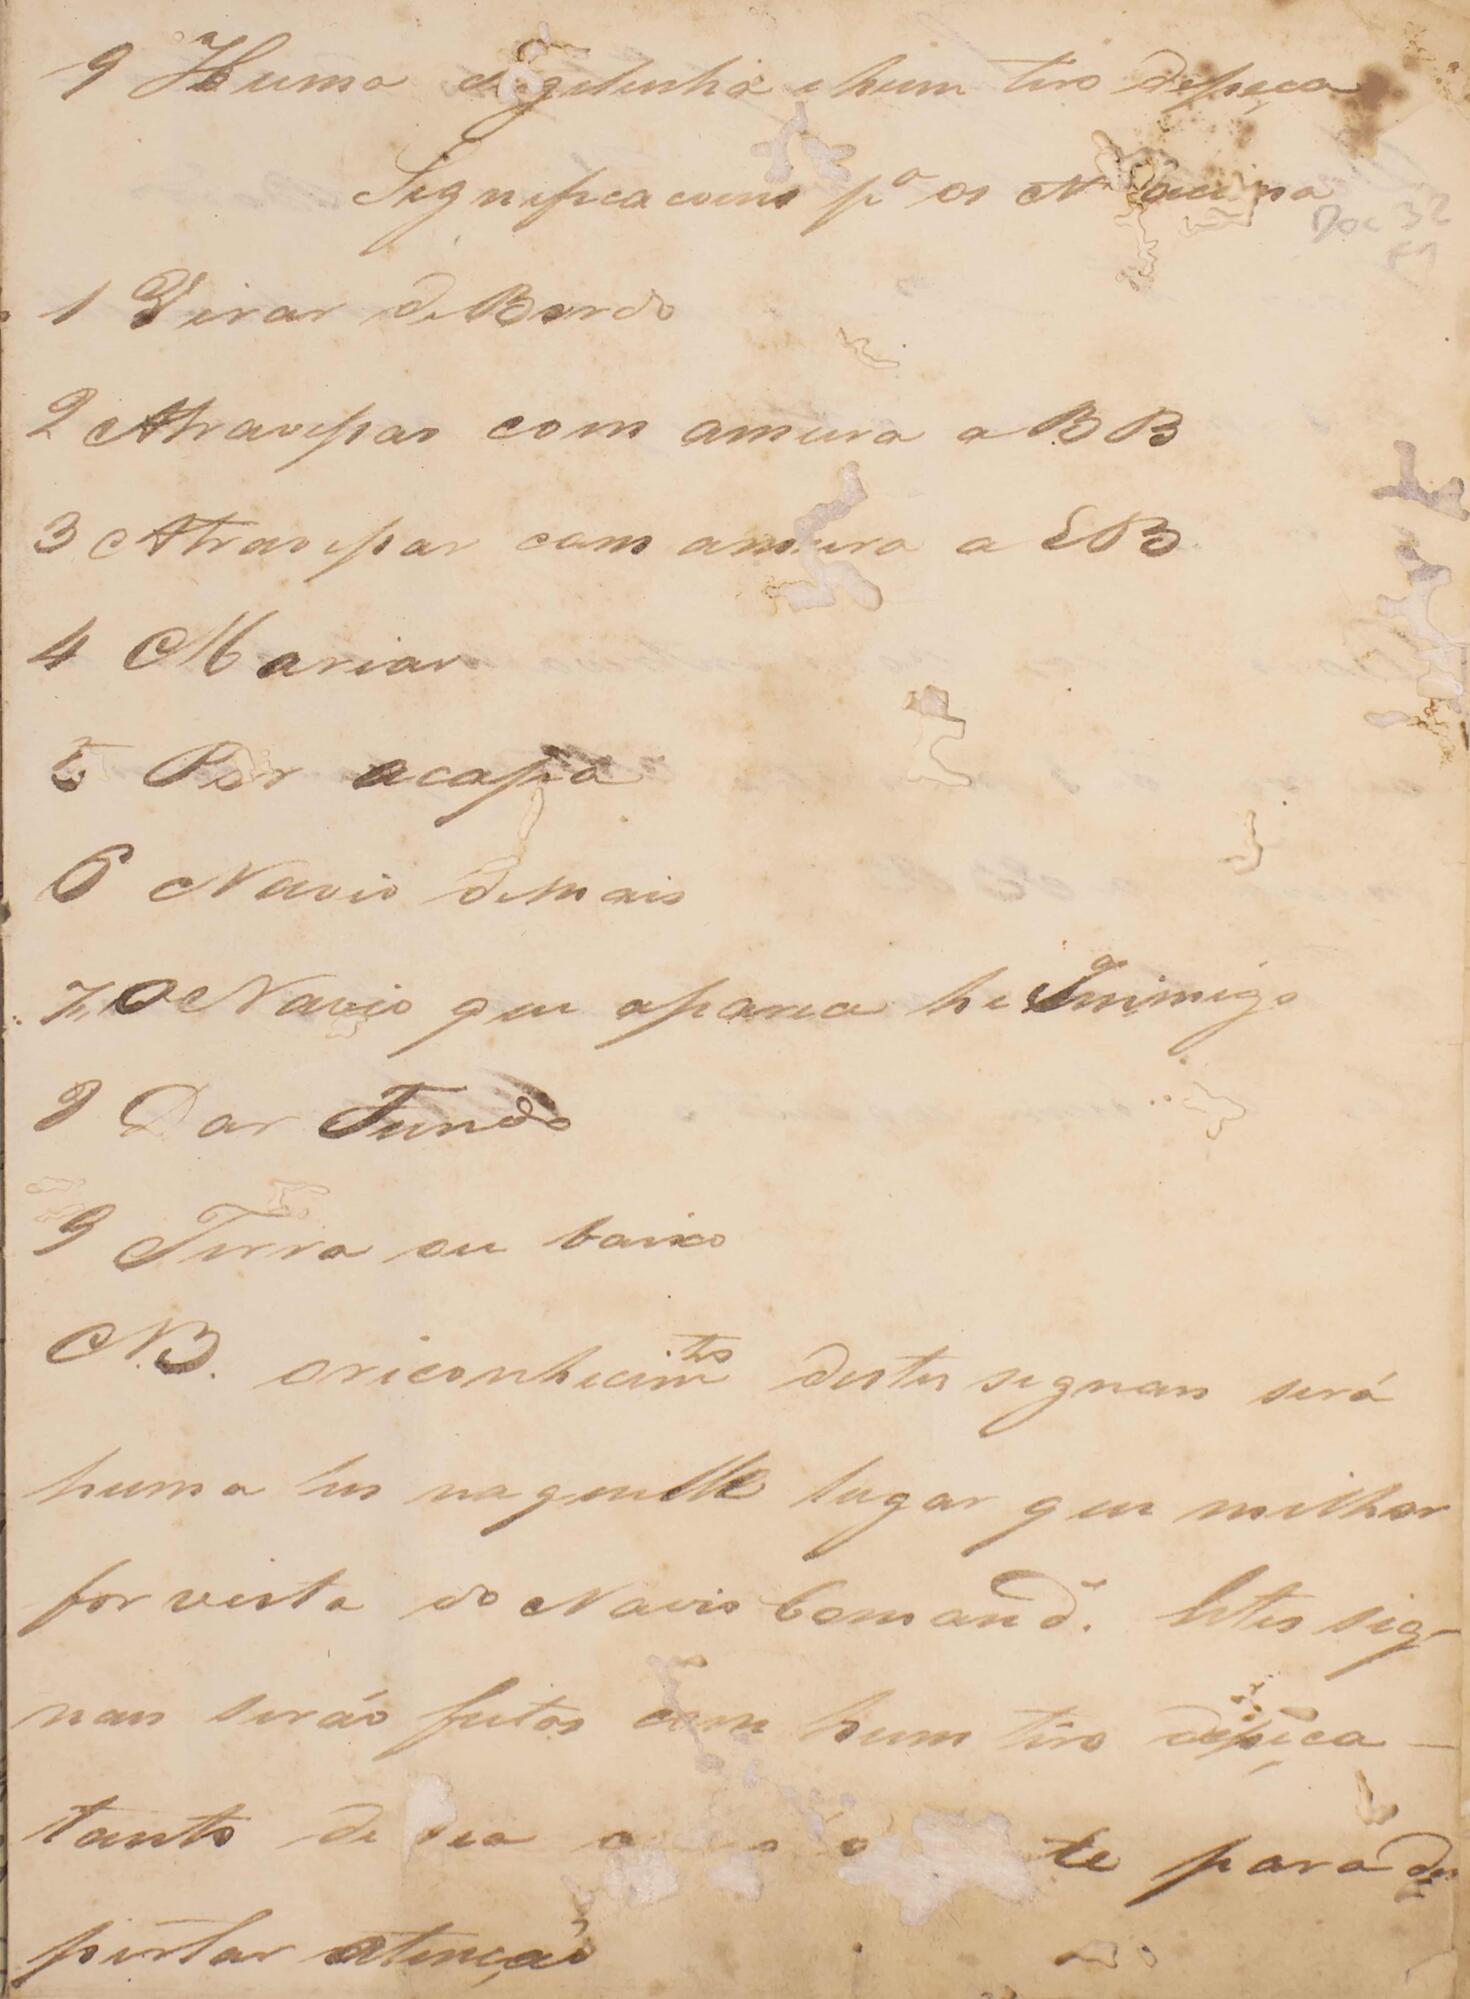 9 Huma e hum tiro depeça
Significacoins pª os N
Doc 32
1 Virar de Bordo
2 Atravessar com amura a BB
3 Atravessar com amura a EB
4 Mariar
5 Por acapa
6 Navio demais
7, O Navio que aparece he Inimigo
8 Dar Fundo
9 Terra ou baixo
NB. oriconhecimtos destes signaes será
huma lus naquelle lugar que milhor
for vista do Navio Comand. Estes sig-
naes seráo feitos com hum tiro depeça
tanto de dia te para des
pertar atençaõ